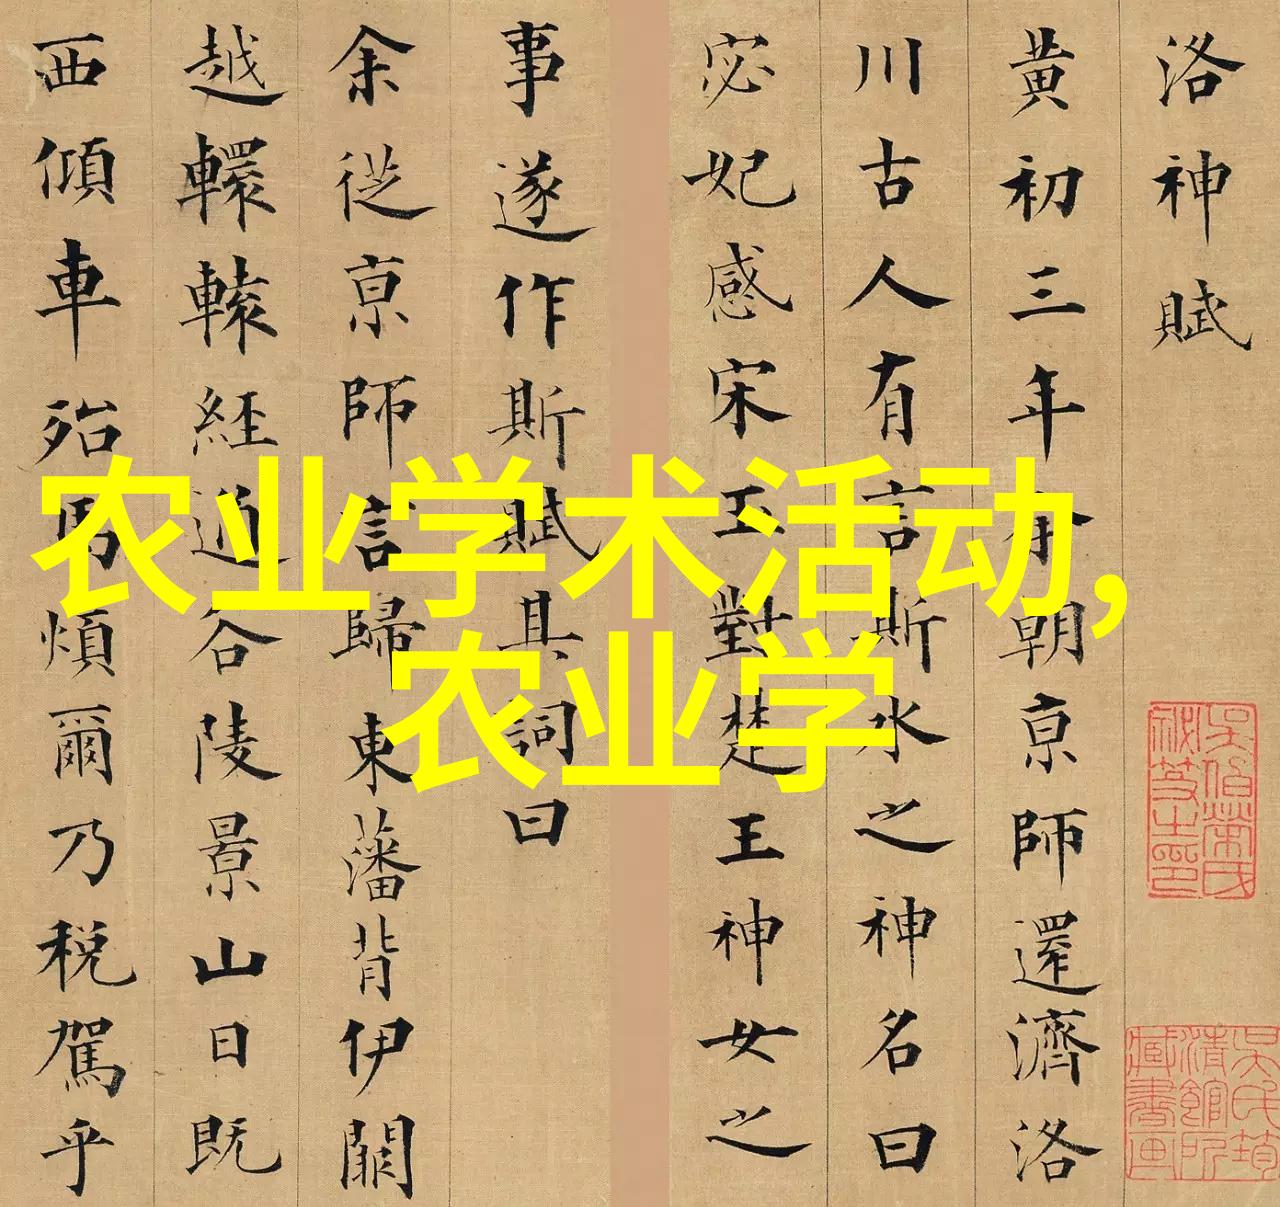 农业学术活动,
农业学
洛神賦
黄初三年余朝亰師還濟洛
川古人有言斯水之神名曰
宓妃感宋玉對楚王神女之
事遂作斯賦其詞曰
余從亰師言歸東藩背伊闕
越轘轅經通谷陵景山日既
西傾車殆馬煩爾乃稅駕乎
吳氏筠
清館所
藏書画